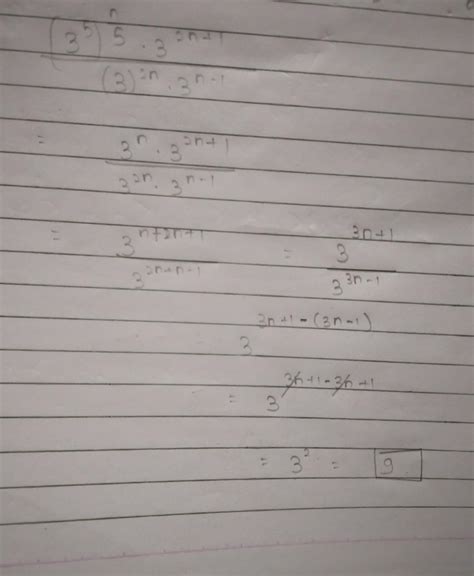 (3^5)^(n/5) · 3^(2n+1) / (3)^(2n) · 3^(n-1)
= 3^n · 3^(2n+1) / 3^(2n) · 3^(n-1)
= 3^(n+2n+1) / 3^(2n+n-1) = 3^(3n+1) / 3^(3n-1)
3^(3n+1-(3n-1))
= 3^(3n+1-3n+1)
= 3^2 = 9